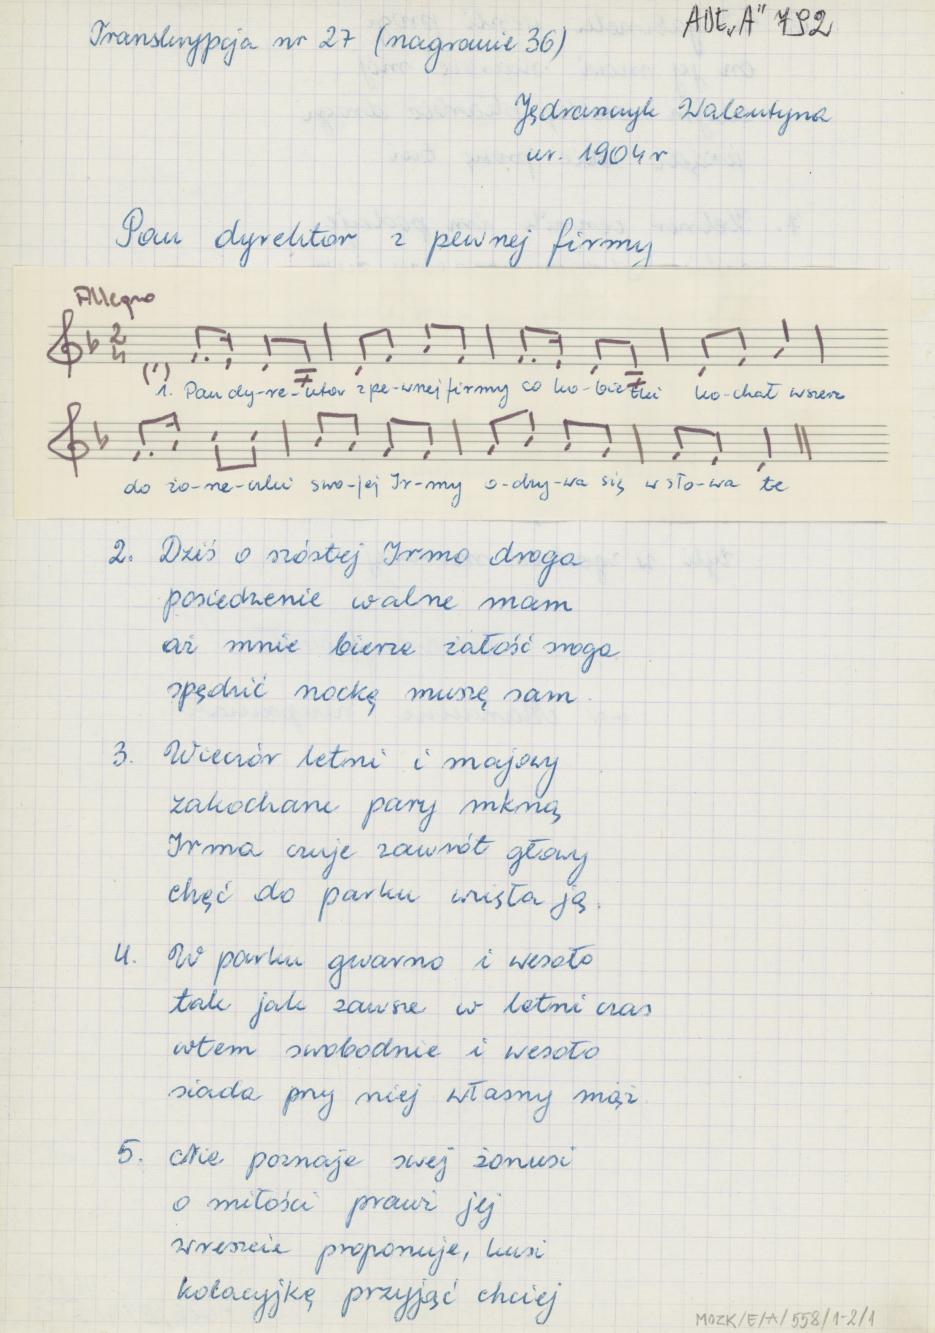 ADt. „A” 792
Transkrypcja nr 27 (nagranie 36)
Jędraszczyk Walentyna
ur. 1904 r
Pan dyrektor z pewnej firmy
Allegro
1. Pan dy-re-ktor z pe-wnej firmy co ko-bie-tki ko-chał wszerz
do żo-ne-czki swo-jej Ir-my o-dzy-wa się w sło-wa te
2. Dziś o szóstej Irmo droga
posiedzenie walne mam
aż mnie bierze żałość sroga
spędzić nockę muszę sam.
3. Wieczór letni i majowy
zakochane pary mkną
Irma czuje zawrót głowy
chęć do parku wzięła ją.
4. W parku gwarno i wesoło
tak jak zawsze w letni czas
wtem swobodnie i wesoło
siada przy niej własny mąż
5. Nie poznaje swej żonusi
o miłości prawi jej
wreszcie proponuje, kusi
kolacyjkę przyjąć chciej
MOZK/E/A/558/1-2/1